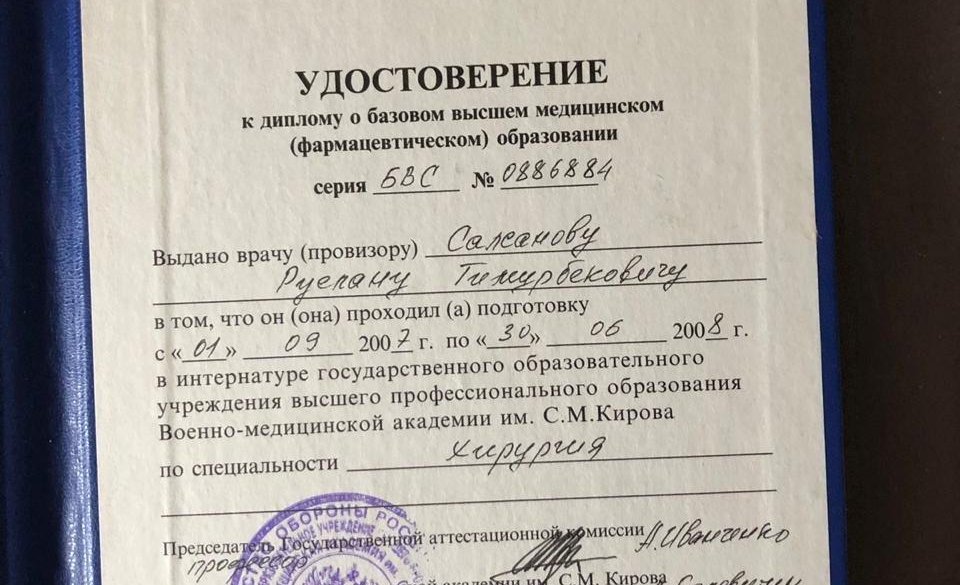 УДОСТОВЕРЕНИЕ
к диплому о базовом высшем медицинском
(фармацевтическом) образовании
серия БВС № 0886884
Выдано врачу (провизору) Салханову
Руслану Тимурбековичу
в том, что он (она) проходил (а) подготовку
с «01» 09 2007 г. по «30» 06 2008 г.
в интернатуре государственного образовательного
учреждения высшего профессионального образования
Военно-медицинской академии им. С.М.Кирова
по специальности хирургия
ОБОРОНЫ РОС
Председатель Государственной аттестационной комиссии А.Иванченко
профессор
академии им. С.М. Кирова